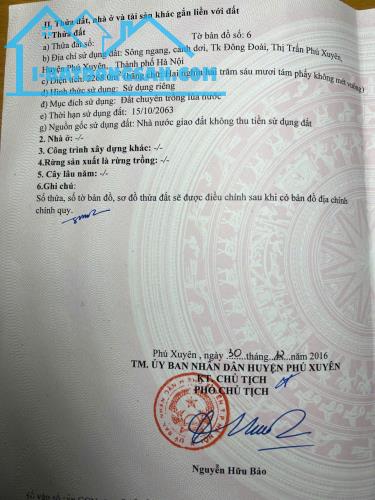 II. Thửa đất, nhà ở và tài sản khác gắn liền với đất
1. Thửa đất
a) Thửa đất số: Tờ bản đồ số: 6
b) Địa chỉ sử dụng đất: Sông ngang, canh dơi, Tk Đông Đoài, Thị Trấn Phú Xuyên,
Huyện Phú Xuyên, Thành phố Hà Nội
c) Diện tích: (bằng chữ: Hai nghìn hai trăm sáu mươi tám phẩy không mét vuông)
d) Hình thức sử dụng: Sử dụng riêng
đ) Mục đích sử dụng: Đất chuyên trồng lúa nước
e) Thời hạn sử dụng đất: 15/10/2063
g) Nguồn gốc sử dụng đất: Nhà nước giao đất không thu tiền sử dụng đất
2. Nhà ở: -/-
3. Công trình xây dựng khác: -/-
4.Rừng sản xuất là rừng trồng: -/-
5. Cây lâu năm: -/-
6.Ghi chú:
Số thửa, số tờ bản đồ, sơ đồ thửa đất sẽ được điều chỉnh sau khi có bản đồ địa chính
chính quy.
Phú Xuyên, ngày 30 tháng 12 năm 2016
TM. ỦY BAN NHÂN DÂN HUYỆN PHÚ XUYÊN
KT. CHỦ TỊCH
PHÓ CHỦ TỊCH
Nguyễn Hữu Bảo